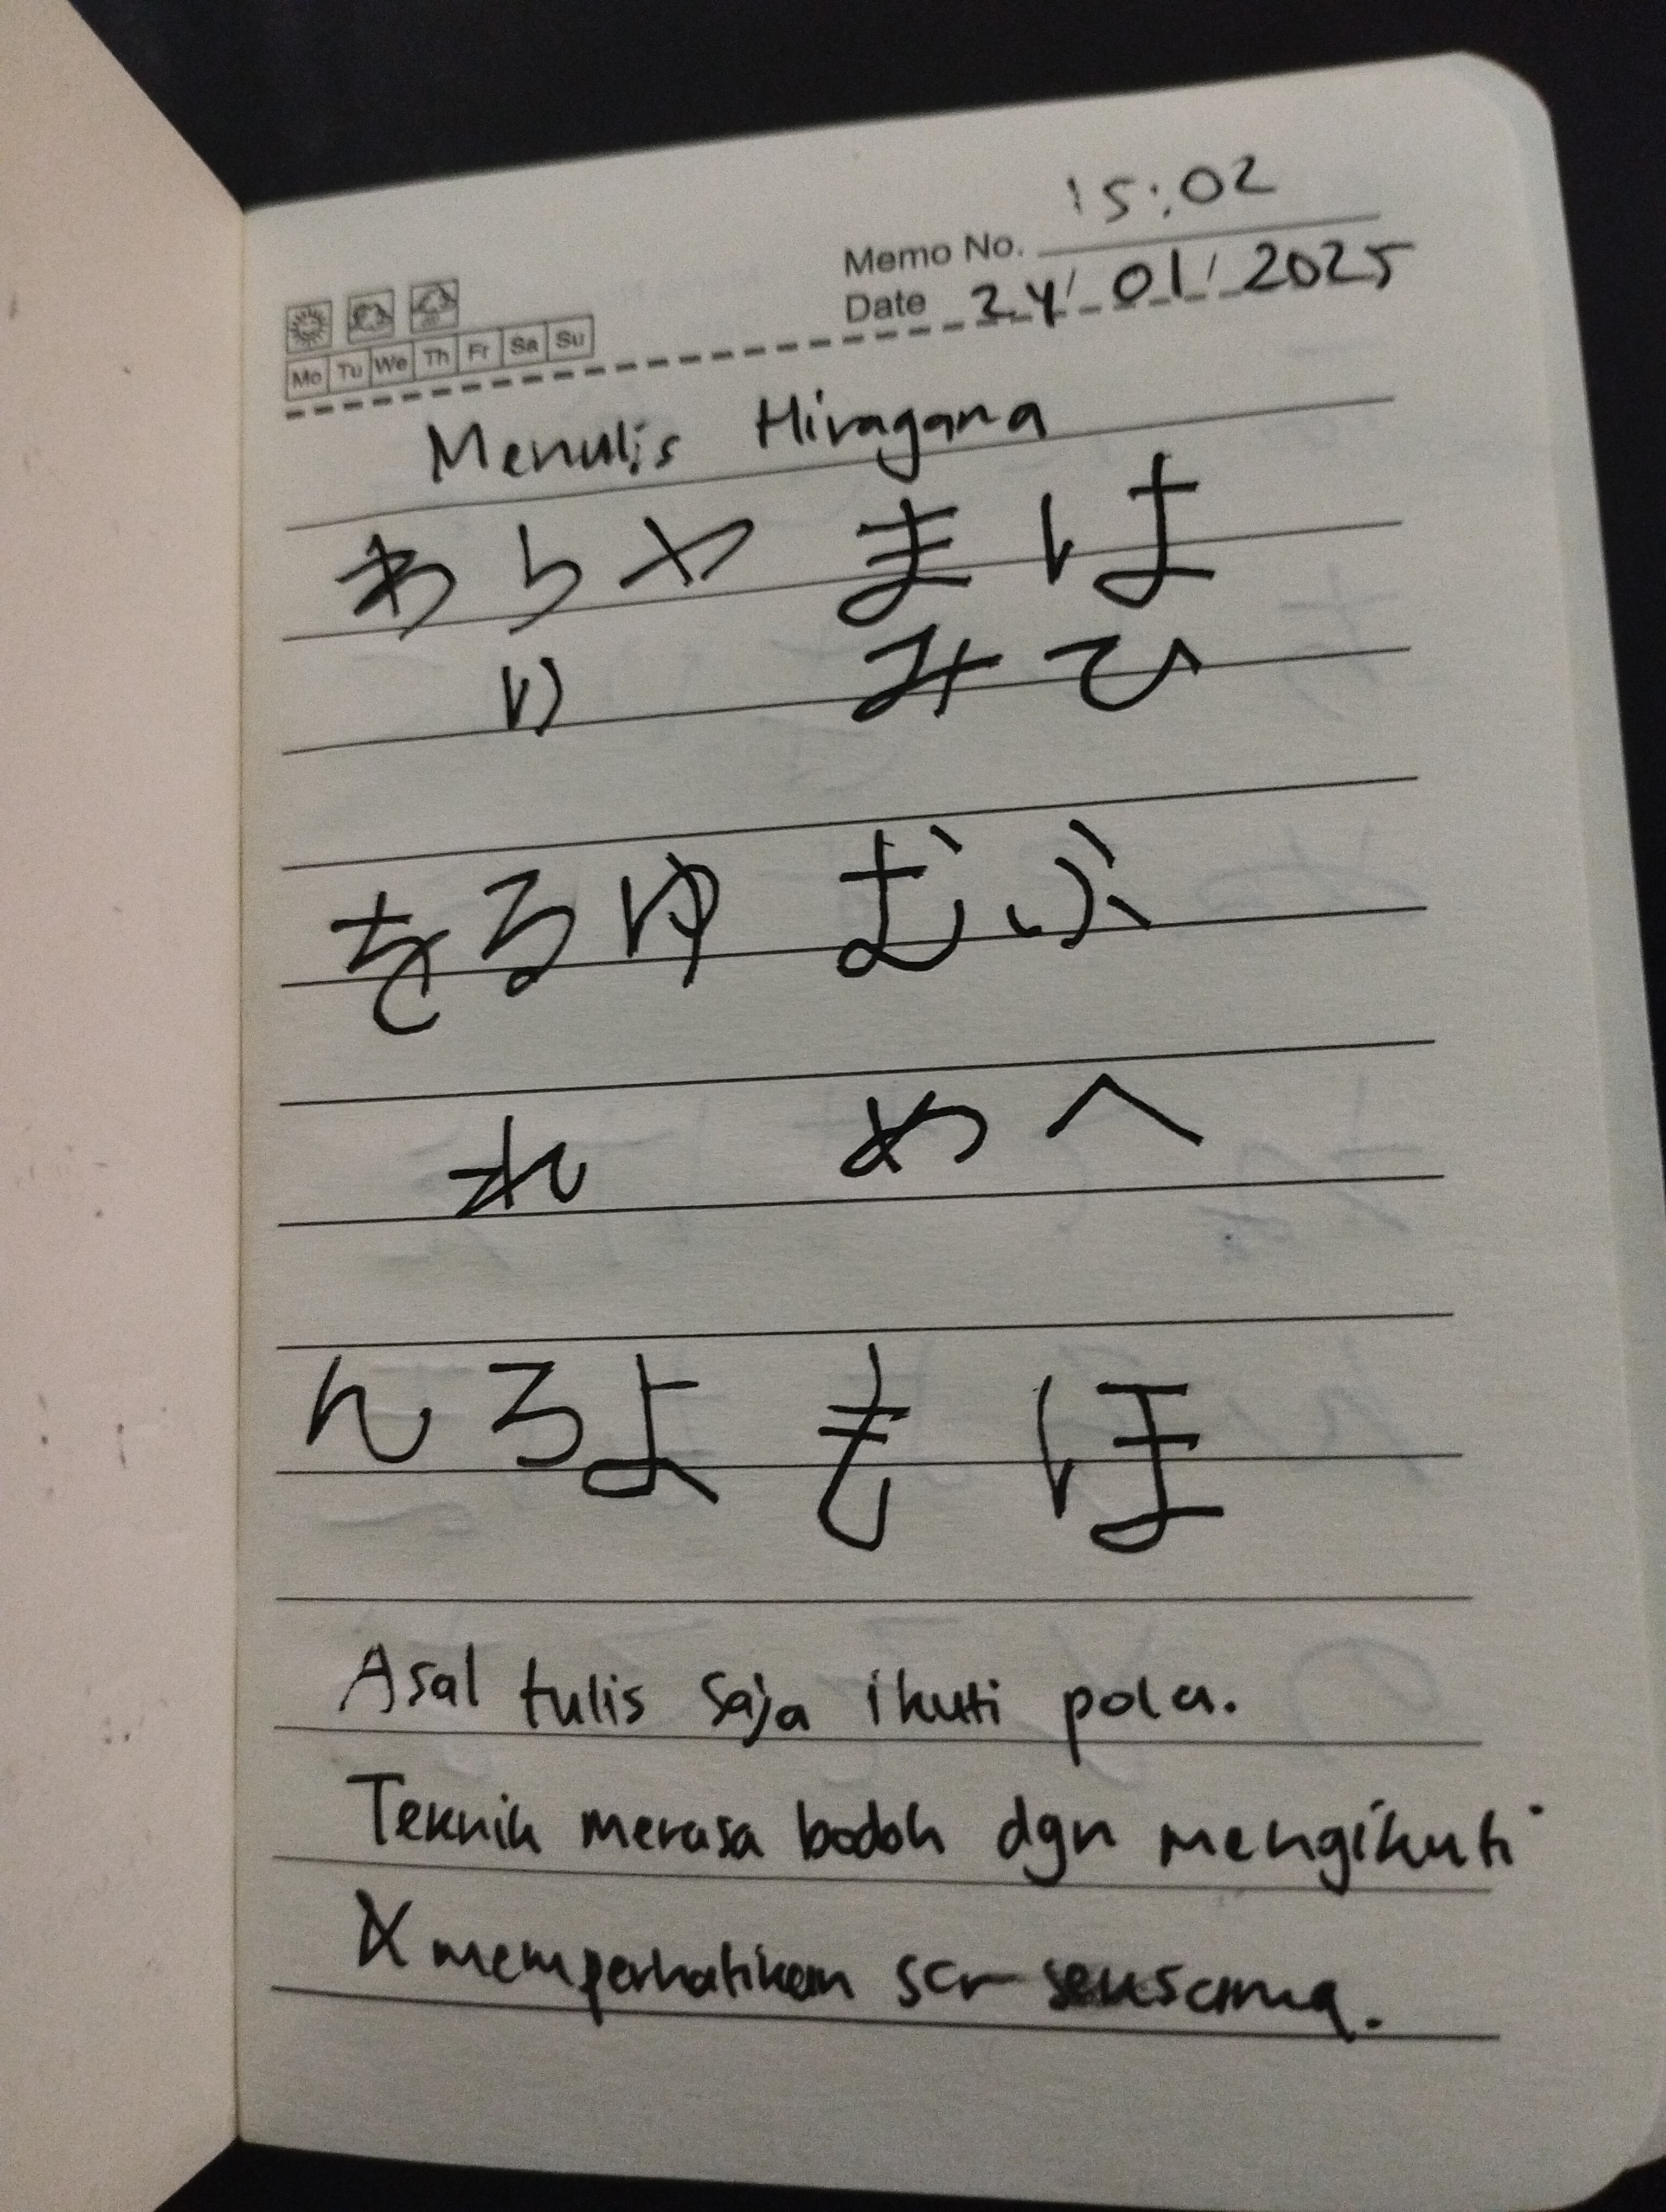 15:02
Memo No.
Date 24/01/2025
Mo Tu We Th Fr Sa Su
Menulis Hiragana
わ ら や ま は
り み ひ
を る ゆ む ふ
れ め へ
ん ろ よ も ほ
Asal tulis saja ikuti pola.
Teknik merasa bodoh dgn mengikuti
& memperhatikan scr seksama.